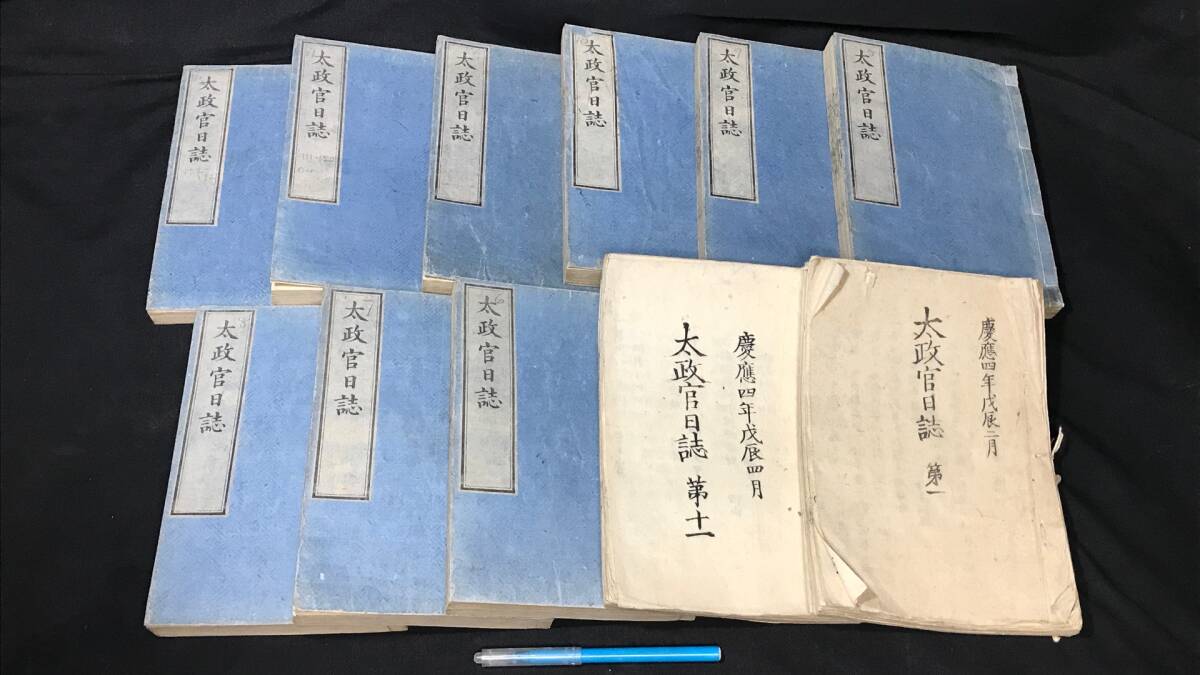 太政官日誌
太政官日誌
太政官日誌
太政官日誌
太政官日誌
太政官日誌
太政官日誌
太政官日誌
太政官日誌
慶應四年戊辰四月
太政官日誌 第十一
慶應四年戊辰二月
太政官日誌 第一